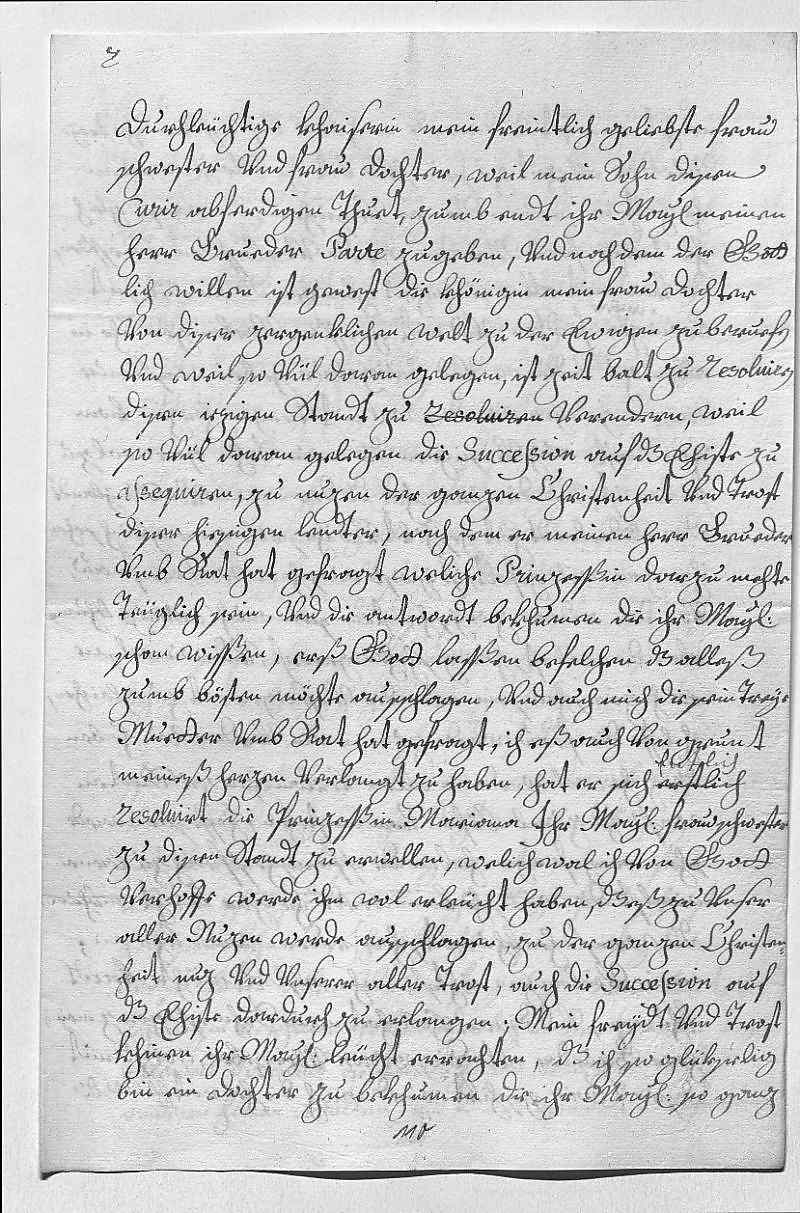 Durhleüchtige khaiserin mein freintlich geliebste frau
schwester Vnd frau dochter, weil mein Sohn disen
Curir abferdigen Thuet, zumb endt ihr Mayl meinen
herr Brueder Parte zu geben, Vnd nach dem der Gott
lich willen ist gewest die khönigin mein frau dochter
Von diser zergenklichen welt zu der Ewigen zu beruefen
Vnd weil so Vül daran gelegen, ist zeit balt zu Resoluiren
disen iezigen Standt zu Resoluiren Verendern, weil
so Vül daran gelegen die Succession auf dz Ehiste zu
assequiren, zu nuzen der ganzen Christenheit Vnd Trost
diser hiesigen lendter, nach dem er meinen herr Brueder
Vmb Rat hat gefragt weliche Prinzessin darzu mehte
Teüglich sein, Vnd die antwordt bekhumen die ihr Mayl:
schon wissen, erß Gott lassen befelchen dz alleß
zumb bösten möchte ausschlagen, Vnd auch mich die sein Treÿe
Muetter Vmb Rat hat gefragt, ich eß auch Von grunt
meineß herzen Verlangt zu haben, hat er sich erstlich
Resoluirt die Prinzessin Mariana Ihr Mayl: frau schwester
zu disen Standt zu erwellen, welich wal ich Von Gott
Verhoffe werde ihm wol erleücht haben, dz eß zu Vnser
aller Nuzen werde ausschlagen, zu der ganzen Christen=
heit nuz Vnd Vnserer aller Trost, auch die Succession auf
dz Ehiste dardurch zu erlangen. Mein freÿdt Vnd Trost
khinen ihr Mayl: leücht errachten, dz ich so glükselig
bin ein dochter zu bekhumen die ihr Mayl: so ganz
110